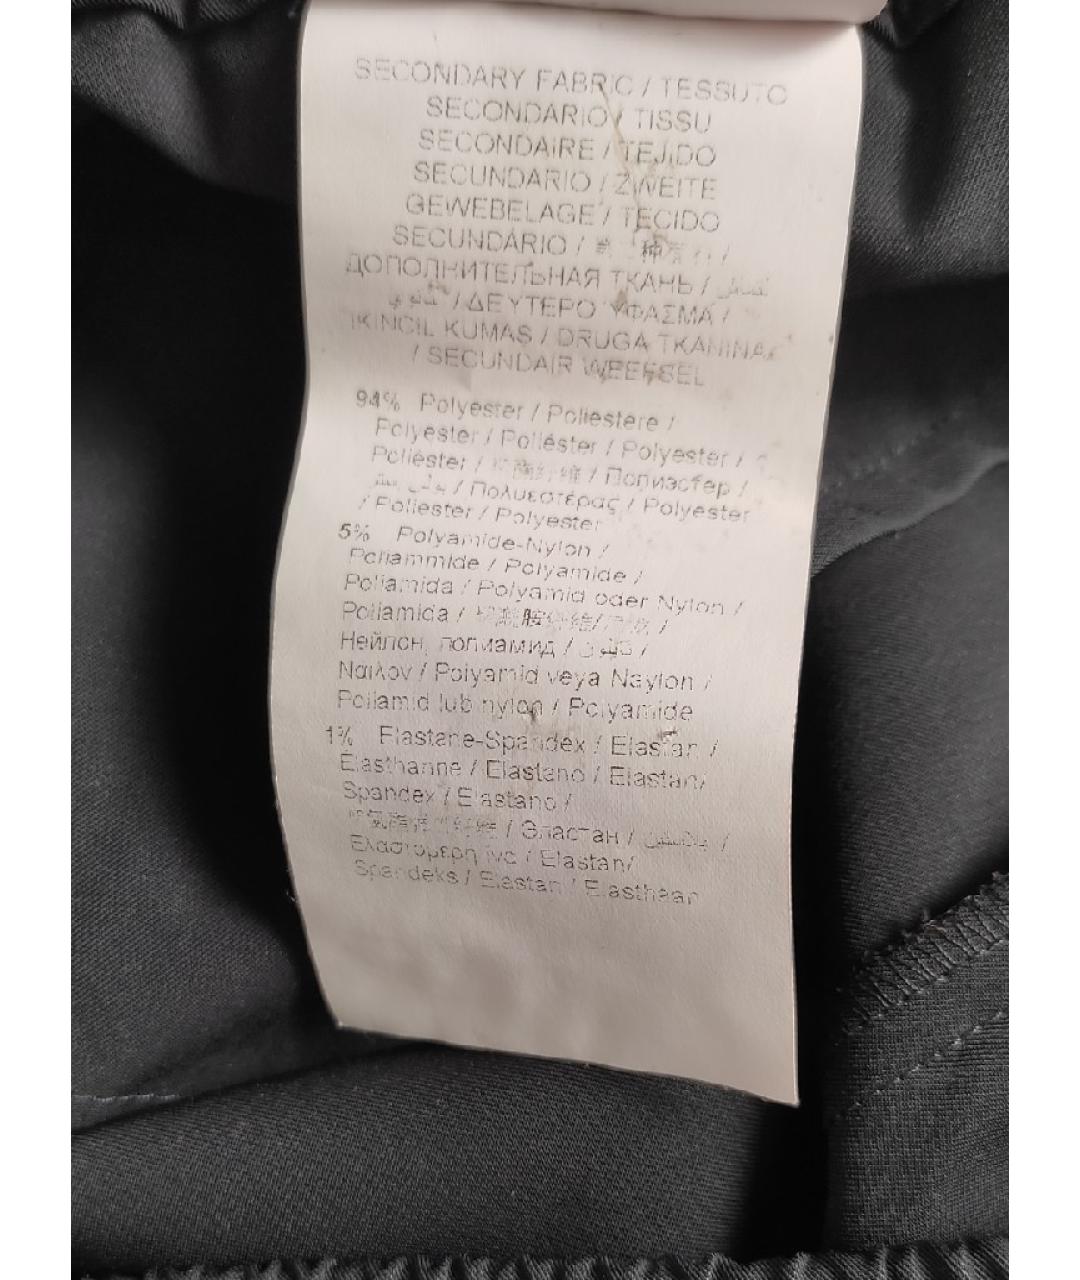 SECONDARY FABRIC / TESSUTO
SECONDARIO / TISSU
SECONDAIRE / TEJIDO
SECUNDARIO / ZWEITE
GEWEBELAGE / TECIDO
SECUNDÁRIO / 种 /
ДОПОЛНИТЕЛЬНАЯ ТКАНЬ /
/ ΔΕΥΤΕΡΟ ΥΦΑΣΜΑ /
IKINCIL KUMAS / DRUGA TKANINA
/ SECUNDAIR WEEFSEL
94% Polyester / Poliestere /
Polyester / Poliéster / Polyester /
Poliéster / 纤维 / Полиэстер /
/ Πολυεστέρας / Polyester
/ Poliester / Polyester
5% Polyamide-Nylon /
Poliammide / Polyamide /
Poliamida / Polyamid oder Nylon /
Poliamida / 酰胺纤维/ /
Нейлон, полиамид / نايلون /
Ναιλον / Polyamid veya Naylon /
Poliamid lub nylon / Polyamide
1% Elastane-Spandex / Elastan /
Élasthanne / Elastano / Elastan/
Spandex / Elastano /
/ Эластан / /
Ελαστομερη ινα / Elastan/
Spandeks / Elastan / Elasthaan